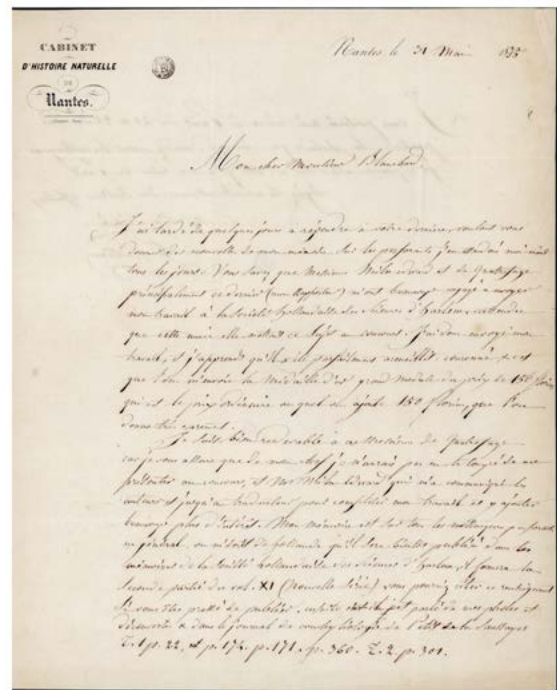 CABINET
D'HISTOIRE NATURELLE
DE
Nantes.
Nantes le 31 Mai 1855
Mon cher Monsieur Blanchard
J'ai tardé de quelques jours à répondre à votre dernière, voulant vous
donner des nouvelles de mon mémoire sur les perforants j'en attendais
tous les jours. Vous savez que Messieurs Milne Edward et de Quatrefage
principalement ce dernier (mon Rapporteur) m'ont beaucoup engagé à envoyer
mon travail à la Société hollandaise des Sciences d'harlem, attendu
que cette année elle mettait ce sujet au concours. J'ai donc envoyé mon
travail, et j'apprends qu'il a été parfaitement accueilli, couronné, et
que l'on m'envoie la Médaille d'or grand module du prix de 150 florins
qui est le prix ordinaire auquel on ajoute 150 florins, que l'on
donne très rarement.
Je suis bien redevable à ce Monsieur de Quatrefage
car je vous assure que de mon chef je n'aurais pas eu le toupet de me
présenter au concours, et Mr Milne Edward qui m'a communiqué les
auteurs et jusqu'au traducteur pour compléter mon travail et y ajouter
beaucoup plus d'intérêt. Mon mémoire est sur tous les mollusques perforants
en général, on m'écrit de hollande qu'il sera bientôt publié dans les
mémoires de la Société hollandaise des Sciences d'harlem, il formera la
Seconde partie du vol. XI (nouvelle Série) vous pourrez citer ce renseignement
si vous êtes pressé de publier, ensuite
découverte dans le journal de conchyliologie de Petit de la Saussaye
T. 1 p. 22, et p. 174. p. 171. p. 360. T. 2. p. 301.